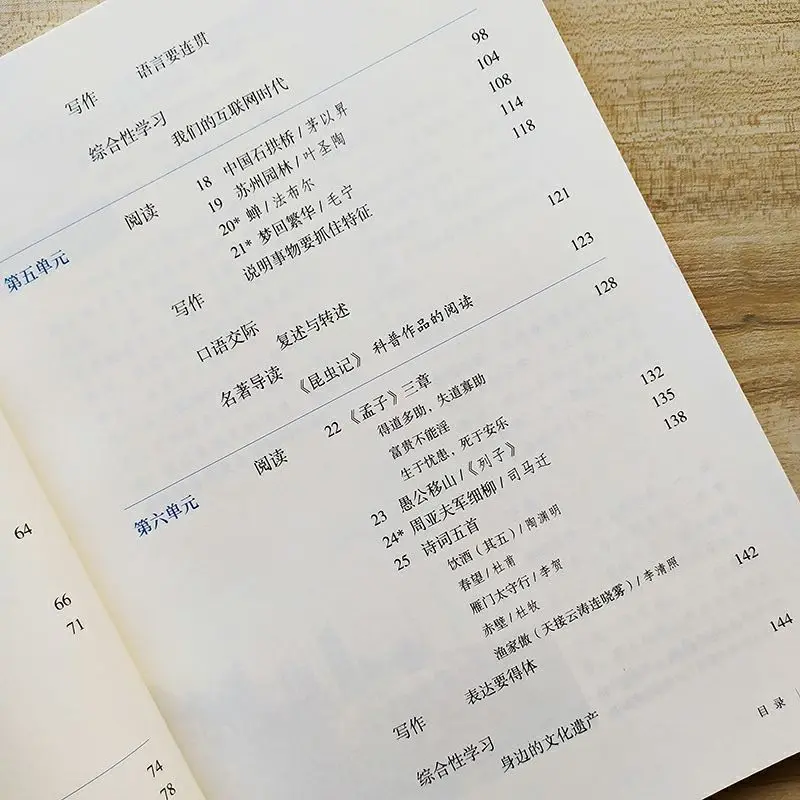 64
66
71
74
78
写作 语言要连贯
综合性学习 我们的互联网时代
第五单元 阅读 18 中国石拱桥/茅以昇 98
19 苏州园林/叶圣陶 104
20* 蝉/法布尔 108
21* 梦回繁华/毛宁 114
写作 说明事物要抓住特征 118
口语交际 复述与转述 121
名著导读 《昆虫记》 科普作品的阅读 123
第六单元 阅读 22 《孟子》三章 128
得道多助，失道寡助
富贵不能淫
生于忧患，死于安乐
23 愚公移山/《列子》 132
24* 周亚夫军细柳/司马迁 135
25 诗词五首 138
饮酒（其五）/陶渊明
春望/杜甫
雁门太守行/李贺
赤壁/杜牧
渔家傲（天接云涛连晓雾）/李清照
写作 表达要得体 142
综合性学习 身边的文化遗产 144
目录